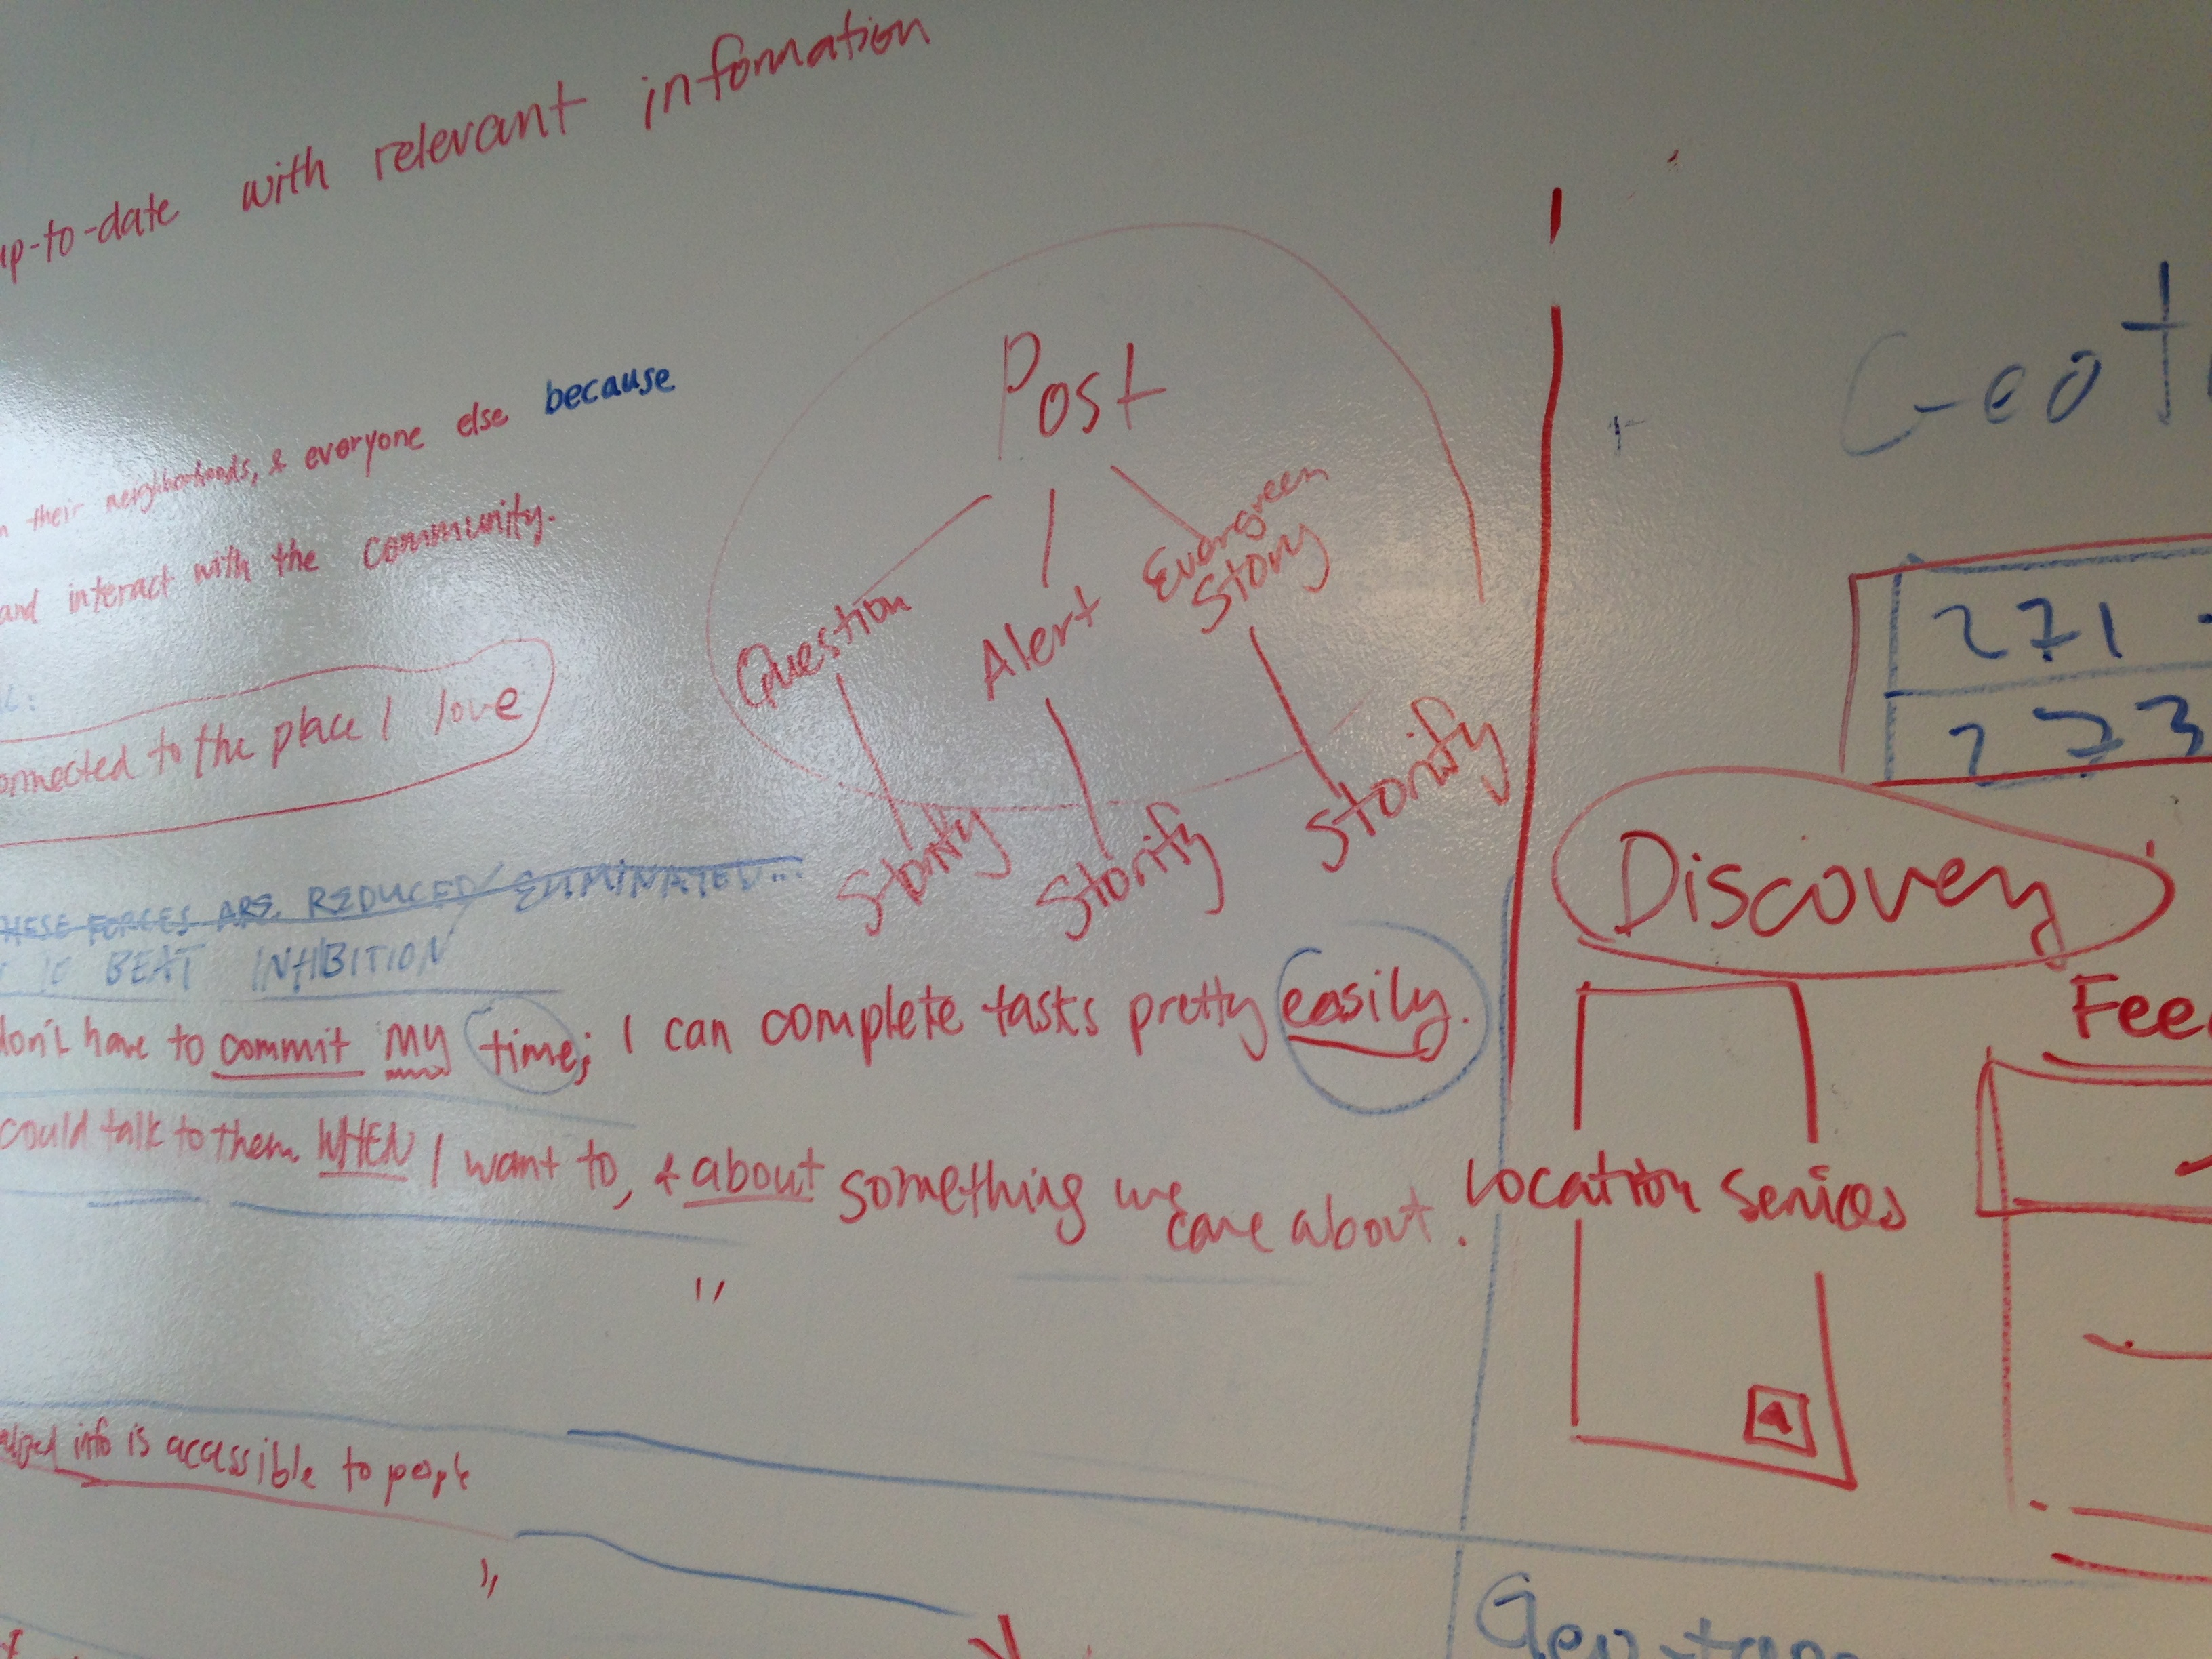 up-to-date with relevant information
their neighborhoods, & everyone else because
and interact with the community.
onnected to the place I love
HESE FORCES ARE REDUCED/ELIMINATED...
TO BEAT INHIBITION
don't have to commit my time; I can complete tasks pretty easily.
could talk to them WHEN I want to, & about something we
care about.
info is accessible to people
Post
Question
Alert
Evergreen
Story
Storify
Storify
Storify
Geot
271
273
Discovery
Fee
Location Services